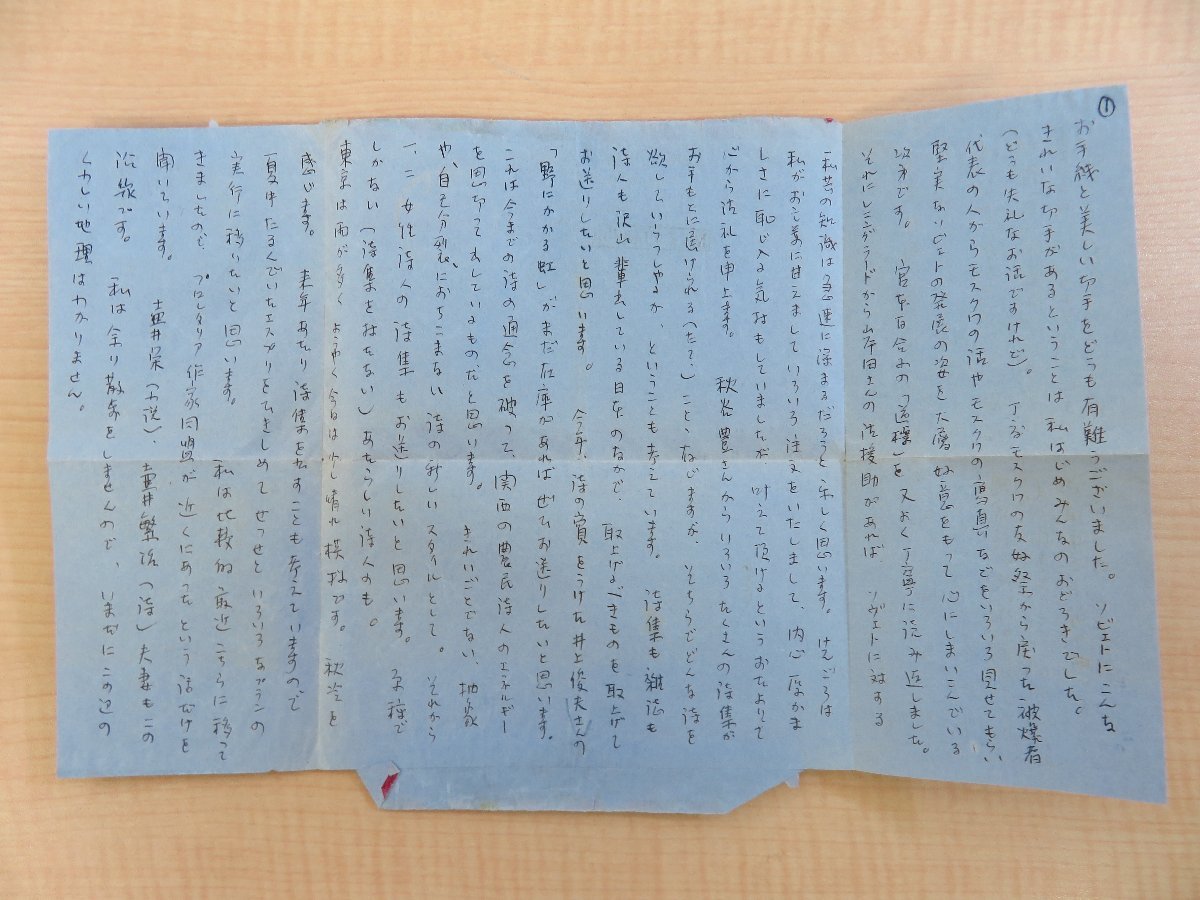 ①
お手紙と美しい切手をどうも有難うございました。ソビエトにこんな
きれいな切手があるということは私はじめみんなのおどろきでした。
(どうも失礼なお話ですけれど)。丁度モスクワの友好祭から戻った被爆者
代表の人からモスクワの話やモスクワの写真などをいろいろ見せてもらい
堅実なソビエトの発展の姿を大層好意をもって心にしまいこんでいる
次第です。宮本百合子の「道標」を又よく丁寧に読み返しました。
それにレニングラードから山本田さんの御援助があれば、ソヴェトに対する
私共の知識は急速に深まるだろうと楽しく思います。けんごろは
私がお言葉に甘えましていろいろ注文をいたしまして、内心厚かま
しさに恥じ入る気おもしていましたが、叶えて頂けるというおたよりで
心から御礼を申上ます。秋谷豊さんからいろいろたくさんの詩集が
お手もとに届けられる(た)ことゝ存じますが、そちらでどんな詩を
欲していらっしゃるか、ということも考えています。詩集も雑誌も
詩人も沢山輩出している日本のなかで、取上げるべきものを取上げて
お送りしたいと思います。今年、詩の賞をうけた井上俊夫さんの
「野にかかる虹」がまだ在庫があればぜひお送りしたいと思います。
これは今までの詩の通念を破って、関西の農民詩人のエネルギー
を思いきって出しているものだと思います。きれいごとでない、抽象
や、自己分裂におちこまない詩の新しいスタイルとして。それから
一、二女性詩人の詩集もお送りしたいと思います。
しかない(詩集をおもちない)あたらしい詩人のも。
東京は雨が多く、ようやく今日は少し晴れ模様です。秋冷を
感じます。来年あたり詩集を出すことも考えていますので
夏中たるんでいたエスプリをひきしめてせっせといろいろなプランの
実行に移りたいと思います。私は比較的最近こちらに移って
きましたので、プロレタリア作家同盟が近くにあったという話だけを
聞いています。壷井栄(小説)、壷井繁治(詩)夫妻もこの
沿線です。私は余り散歩をしませんので、いまだにこの辺の
くわしい地理はわかりません。